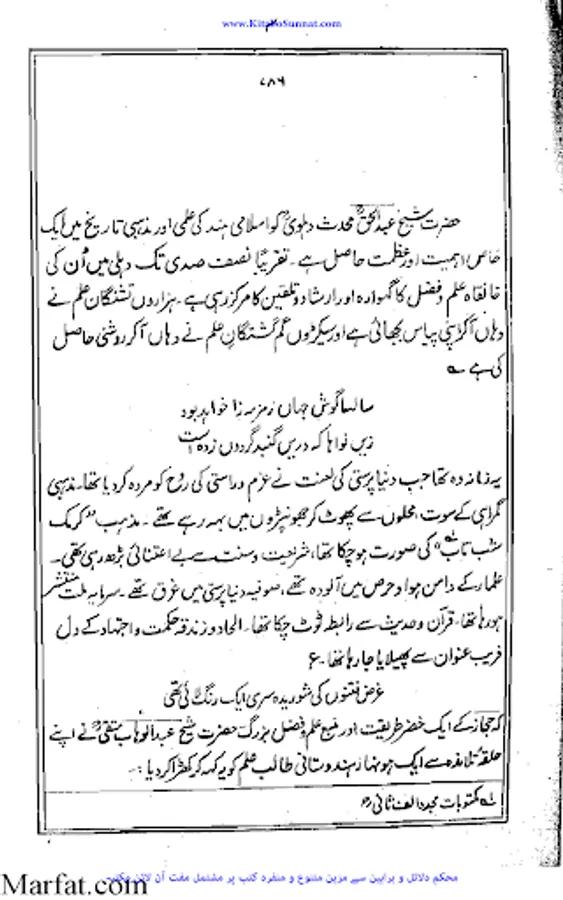 www.KitaboSunnat.com
۷۸۶
حضرت شیخ عبدالحقؒ محدث دہلویؒ کو اسلامی ہند کی علمی اور مذہبی تاریخ میں ایک
خاص اہمیت اور عظمت حاصل ہے۔ تقریباً نصف صدی تک دہلی میں اُن کی
خانقاہ علم و فضل کا گہوارہ اور ارشاد و تلقین کا مرکز رہی ہے۔ ہزاروں تشنگان علم نے
وہاں آکر اپنی پیاس بجھائی ہے اور سیکڑوں گم گشتگانِ علم نے وہاں آکر روشنی حاصل
کی ہے ؎
سالہا گوش جہاں زمزمہ زا خواہد بود
زیں نواہا کہ دریں گنبد گردوں زدہ است
یہ زمانہ وہ تھا جب دنیا پرستی کی لعنت نے عزم و راستی کی روح کو مردہ کر دیا تھا۔ مذہبی
گمراہی کے سوت، محلوں سے پھوٹ کر جھونپڑوں میں بہہ رہے تھے۔ مذہب "کرمک
شب تاب" کی صورت ہو چکا تھا، شریعت و سنت سے بے اعتنائی بڑھ رہی تھی۔
علماء کے دامن ہوا و حرص میں آلودہ تھے، صوفیہ دنیا پرستی میں غرق تھے۔ سرمایہ ملت منتشر
ہو رہا تھا۔ قرآن و حدیث سے رابطہ ٹوٹ چکا تھا۔ الحاد و زندقہ حکمت و اجتہاد کے دل
فریب عنوان سے پھیلایا جا رہا تھا۔ ع
غرض فتنوں کی شوریدہ سری ایک رنگ لائی تھی
کہ حجاز کے ایک خضر طریقت اور منبع علم و فضل بزرگ حضرت شیخ عبدالوہاب متقیؒ نے اپنے
حلقہ تلامذہ سے ایک ہونہار ہندوستانی طالب علم کو یہ کہہ کر کھڑا کر دیا:۔
لے مکتوبات مجدد الف ثانیؒ
محکم دلائل و براہین سے مزین متنوع و منفرد کتب پر مشتمل مفت آن لائن مکتبہ
Marfat.com